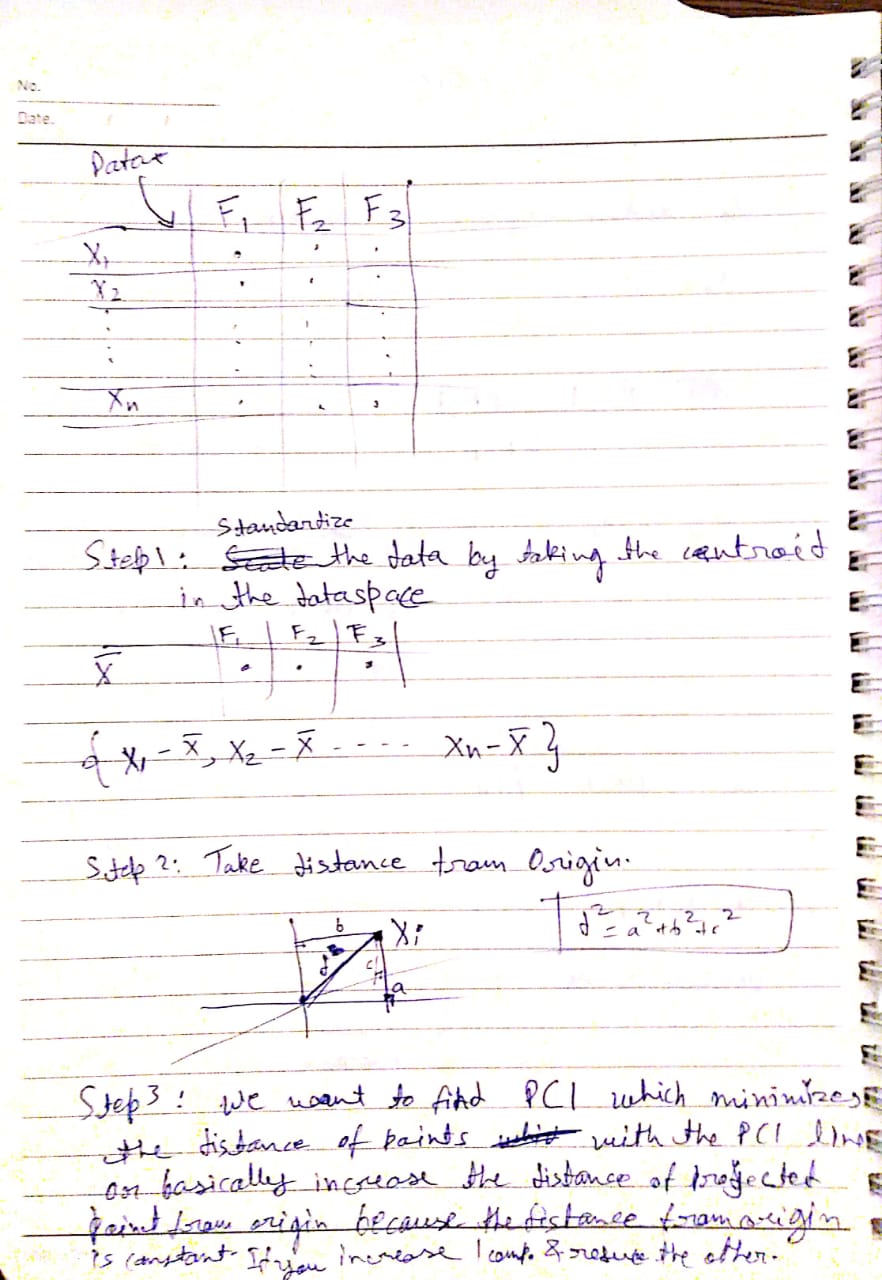 No.
Date. / /
Data
F1 F2 F3
X1
X2
Xn
Standardize
Step 1: Scale the data by taking the centroid
in the dataspace
F1 F2 F3
X̄
{ X1 - X̄, X2 - X̄ - - - - Xn - X̄ }
Step 2: Take distance from Origin.
b Xi d² = a² + b² + c²
d c
a
Step 3: We want to find PC1 which minimizes
the distance of points with the PC1 line
or basically increase the distance of projected
point from origin because the distance from origin
is constant. If you increase 1 comp. & reduce the other.